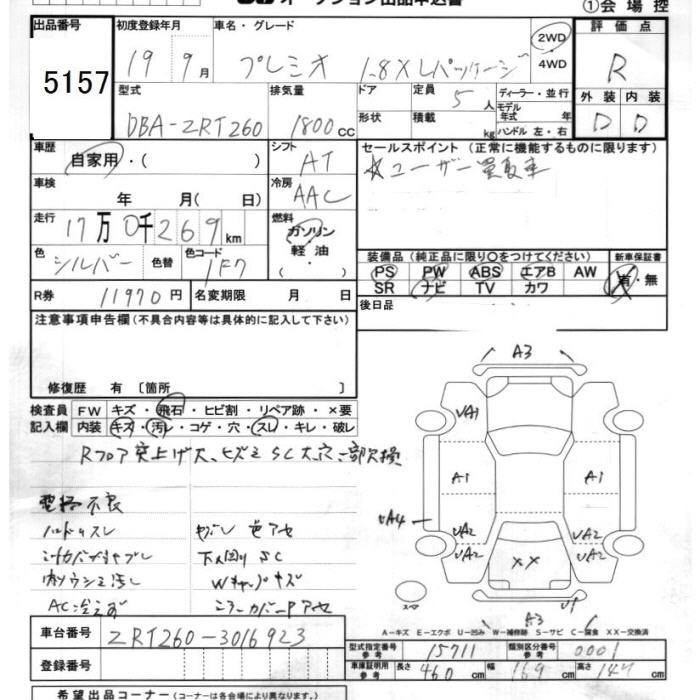 オークション出品申込書
①会場控
出品番号 初度登録年月 車名・グレード 評価点
5157 19 9月 プレミオ 1.8X Lパッケージ 2WD 4WD R
型式 排気量 ドア 定員 5人 ディーラー・並行 外装 内装
DBA-ZRT260 1800cc 形状 積載 kg モデル年式 年 ハンドル 左・右 D D
車歴 自家用・( ) シフト AT セールスポイント (正常に機能するものに限ります)
☆ユーザー買取車
車検 年 月( 日) 冷房 AAC
走行 17万0千269km 燃料 ガソリン 軽油 ・( )
色 シルバー 色替 色コード 1F7
装備品 (純正品に限り〇をつけてください) 新車保証書
PS PW ABS エアB AW 有・無
SR ナビ TV カワ
R券 11970円 名変期限 月 日 後日品
注意事項申告欄 (不具合内容等は具体的に記入して下さい)
修復歴 有 〔箇所 〕
検査員 FW キズ・飛石・ヒビ割・リペア跡・×要
記入欄 内装 キズ・汚レ・コゲ・穴・スレ・キレ・破レ
Rフロア突上げ大、ヒズミ SC大、穴 一部欠損
A3
UA1
A1 A1
UA4
UA2 UA2
UA2 UA2
XX
スペア
A3 U1
ハンドルスレ
下廻り SC
Wキャップキズ
AC冷えず
A-キズ E-エクボ U-凹み W-補修跡 S-サビ C-腐食 XX-交換済
車台番号 ZRT260-3016923
型式指定番号 参考 15711 類別区分番号 参考 0001
登録番号
車庫証明用 参考 長さ 460cm 幅 169cm 高さ 147cm
希望出品コーナー (コーナーは各会場により異なります。)